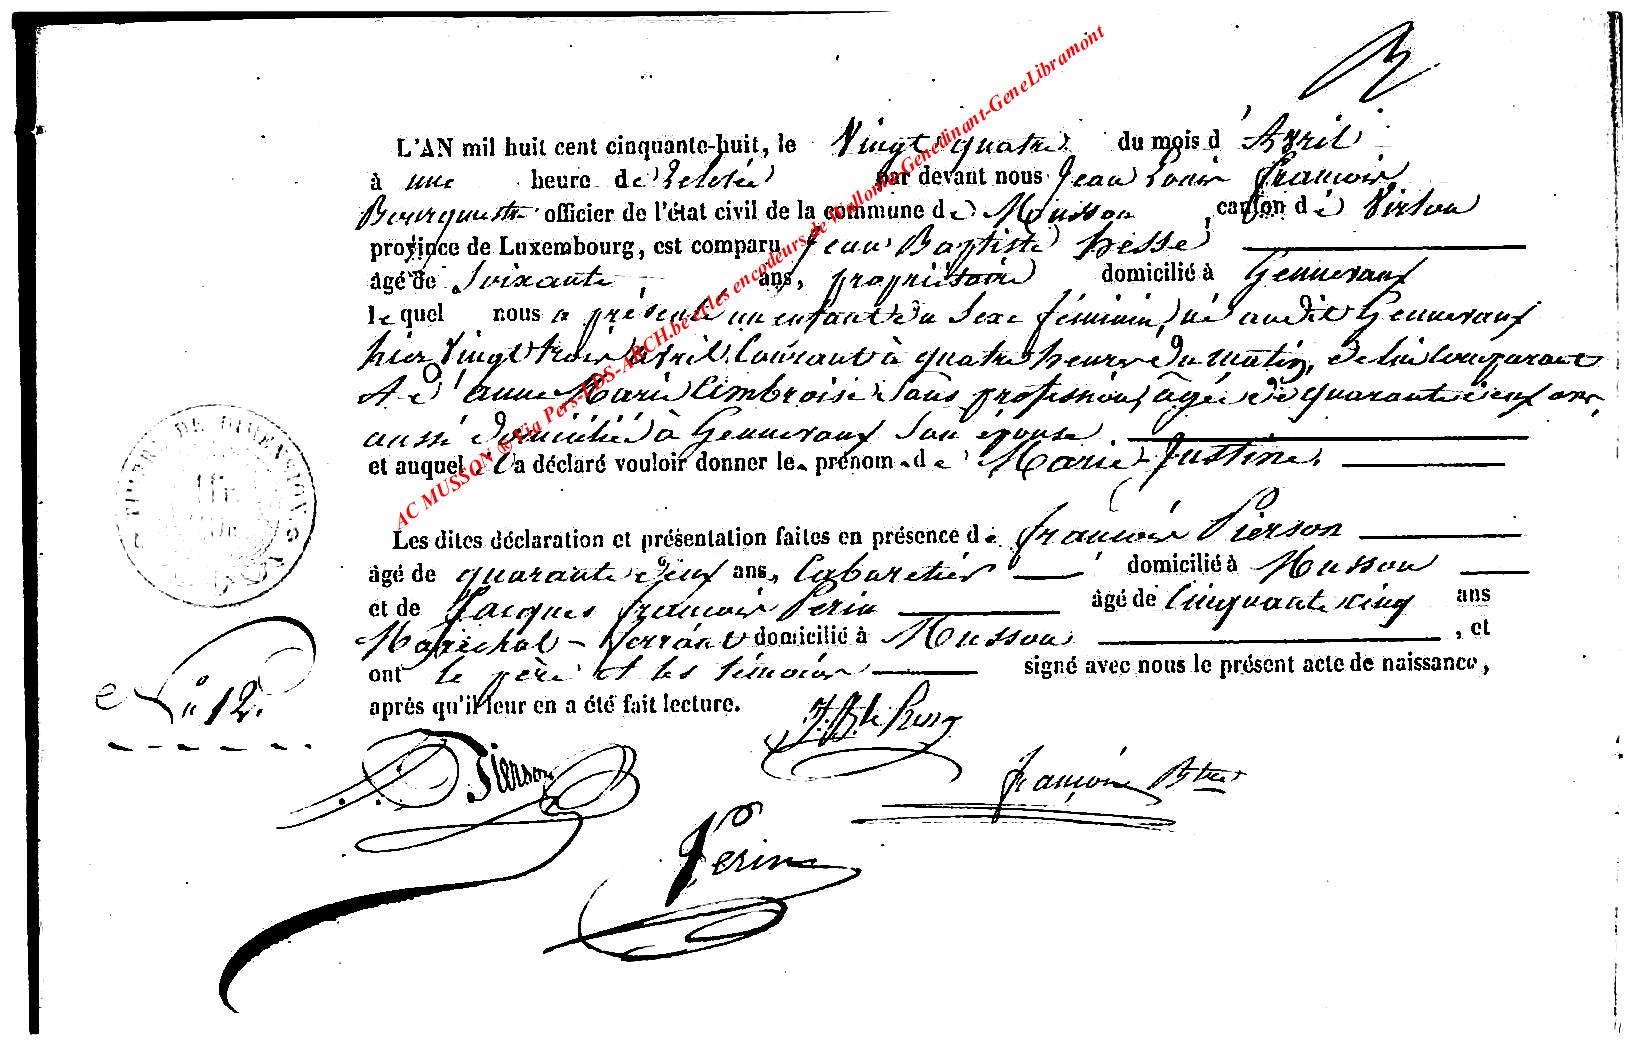 L'AN mil huit cent cinquante-huit, le Vingt quatre du mois d'Avril
à une heure de relevée par devant nous Jean Louis François
Bourguester officier de l'état civil de la commune de Musson, canton de Virton
province de Luxembourg, est comparu Jean Baptiste hesse
âgé de Soixante ans, propriétaire domicilié à Gennevaux
lequel nous a présenté un enfant du Sexe féminin, né audit Gennevaux
hier Vingt trois avril Courant à quatre heures du matin, de lui Comparant
et d'anne Marie Ambroise Sans profession, âgée de quarante deux ans,
aussi domiciliée à Gennevaux Son épouse
et auquel il a déclaré vouloir donner le prénom de Marie Justine.
Les dites déclaration et présentation faites en présence de françois Pierson
âgé de quarante deux ans, Cabaretier domicilié à Musson
et de Jacques françois Perin âgé de Cinquante cinq ans
Maréchal-ferrant domicilié à Musson, et
ont le père et les témoins signé avec nous le présent acte de naissance,
après qu'il leur en a été fait lecture.
N° 12.
Pierson
françois
Perin
TIMBRE DE DIMENSION
AC MUSSON ® Via Pers-FDS-ARCH.be et les encodeurs de Wallonia-Genedinant-GeneLibramont